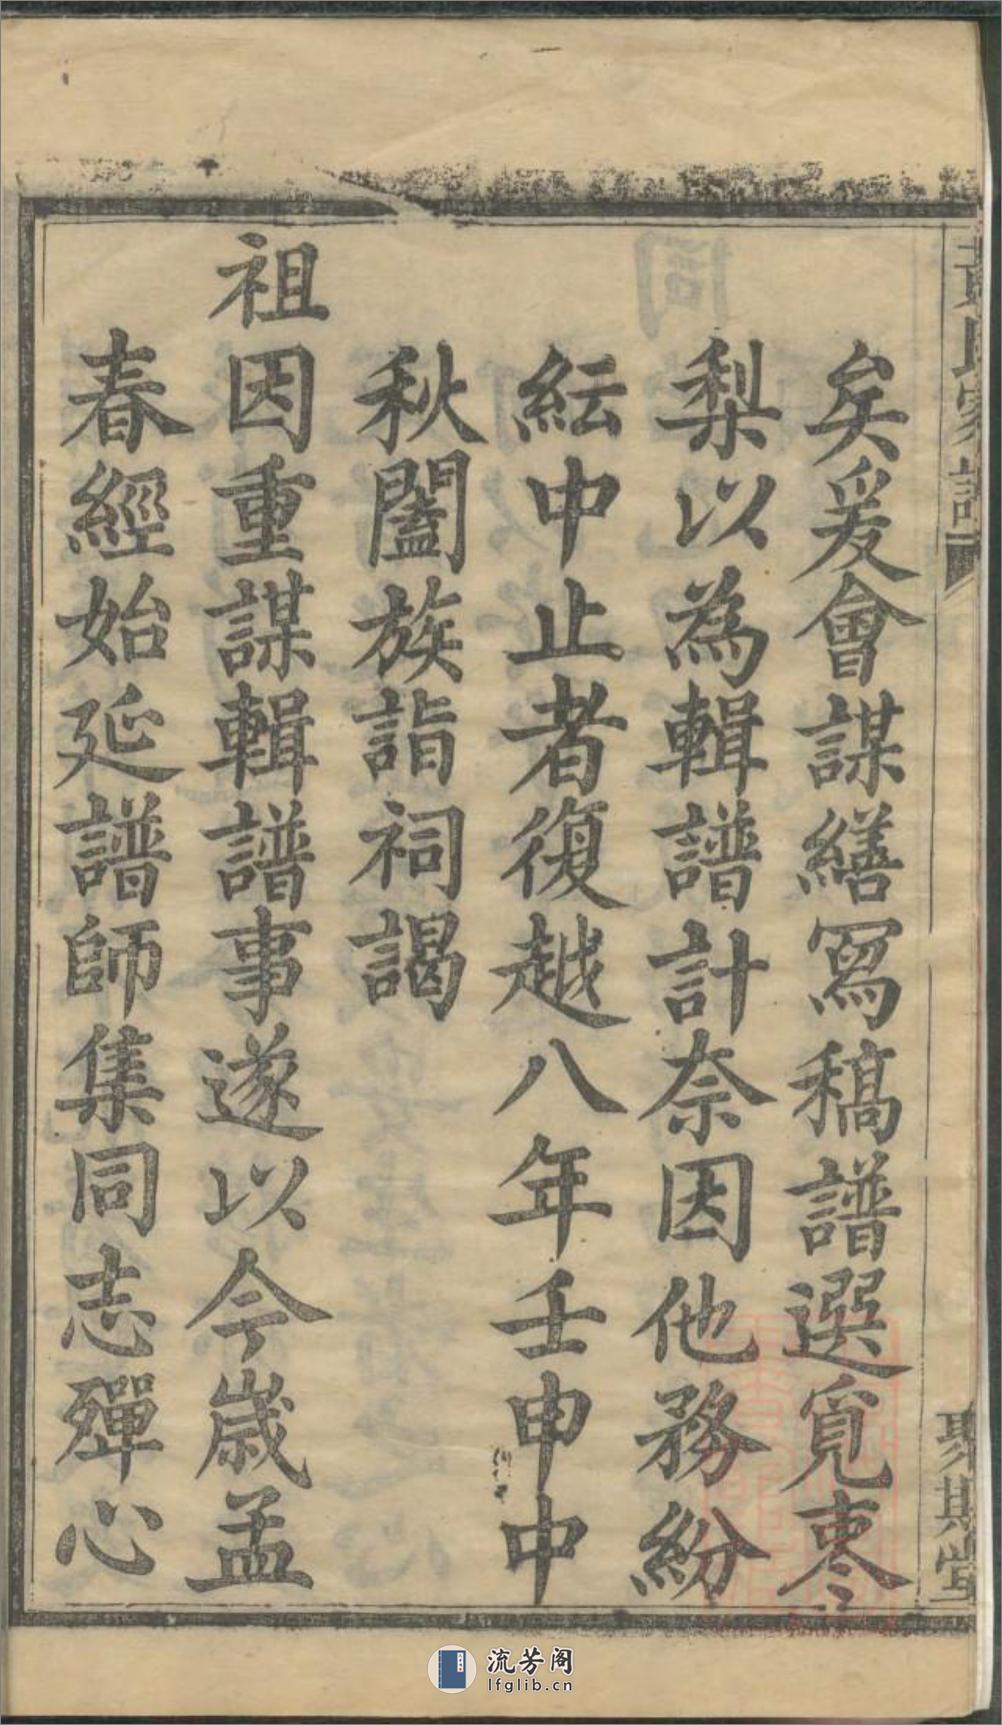 矣爰會謀繕寫稿譜選覓枣
梨以為輯譜計奈因他務紛
紜中止者復越八年壬申中
秋闔族詣祠謁
祖因重謀輯譜事遂以今歲孟
春經始延譜師集同志殫心
氏家譜
聚斯堂
流芳阁
lfglib.cn